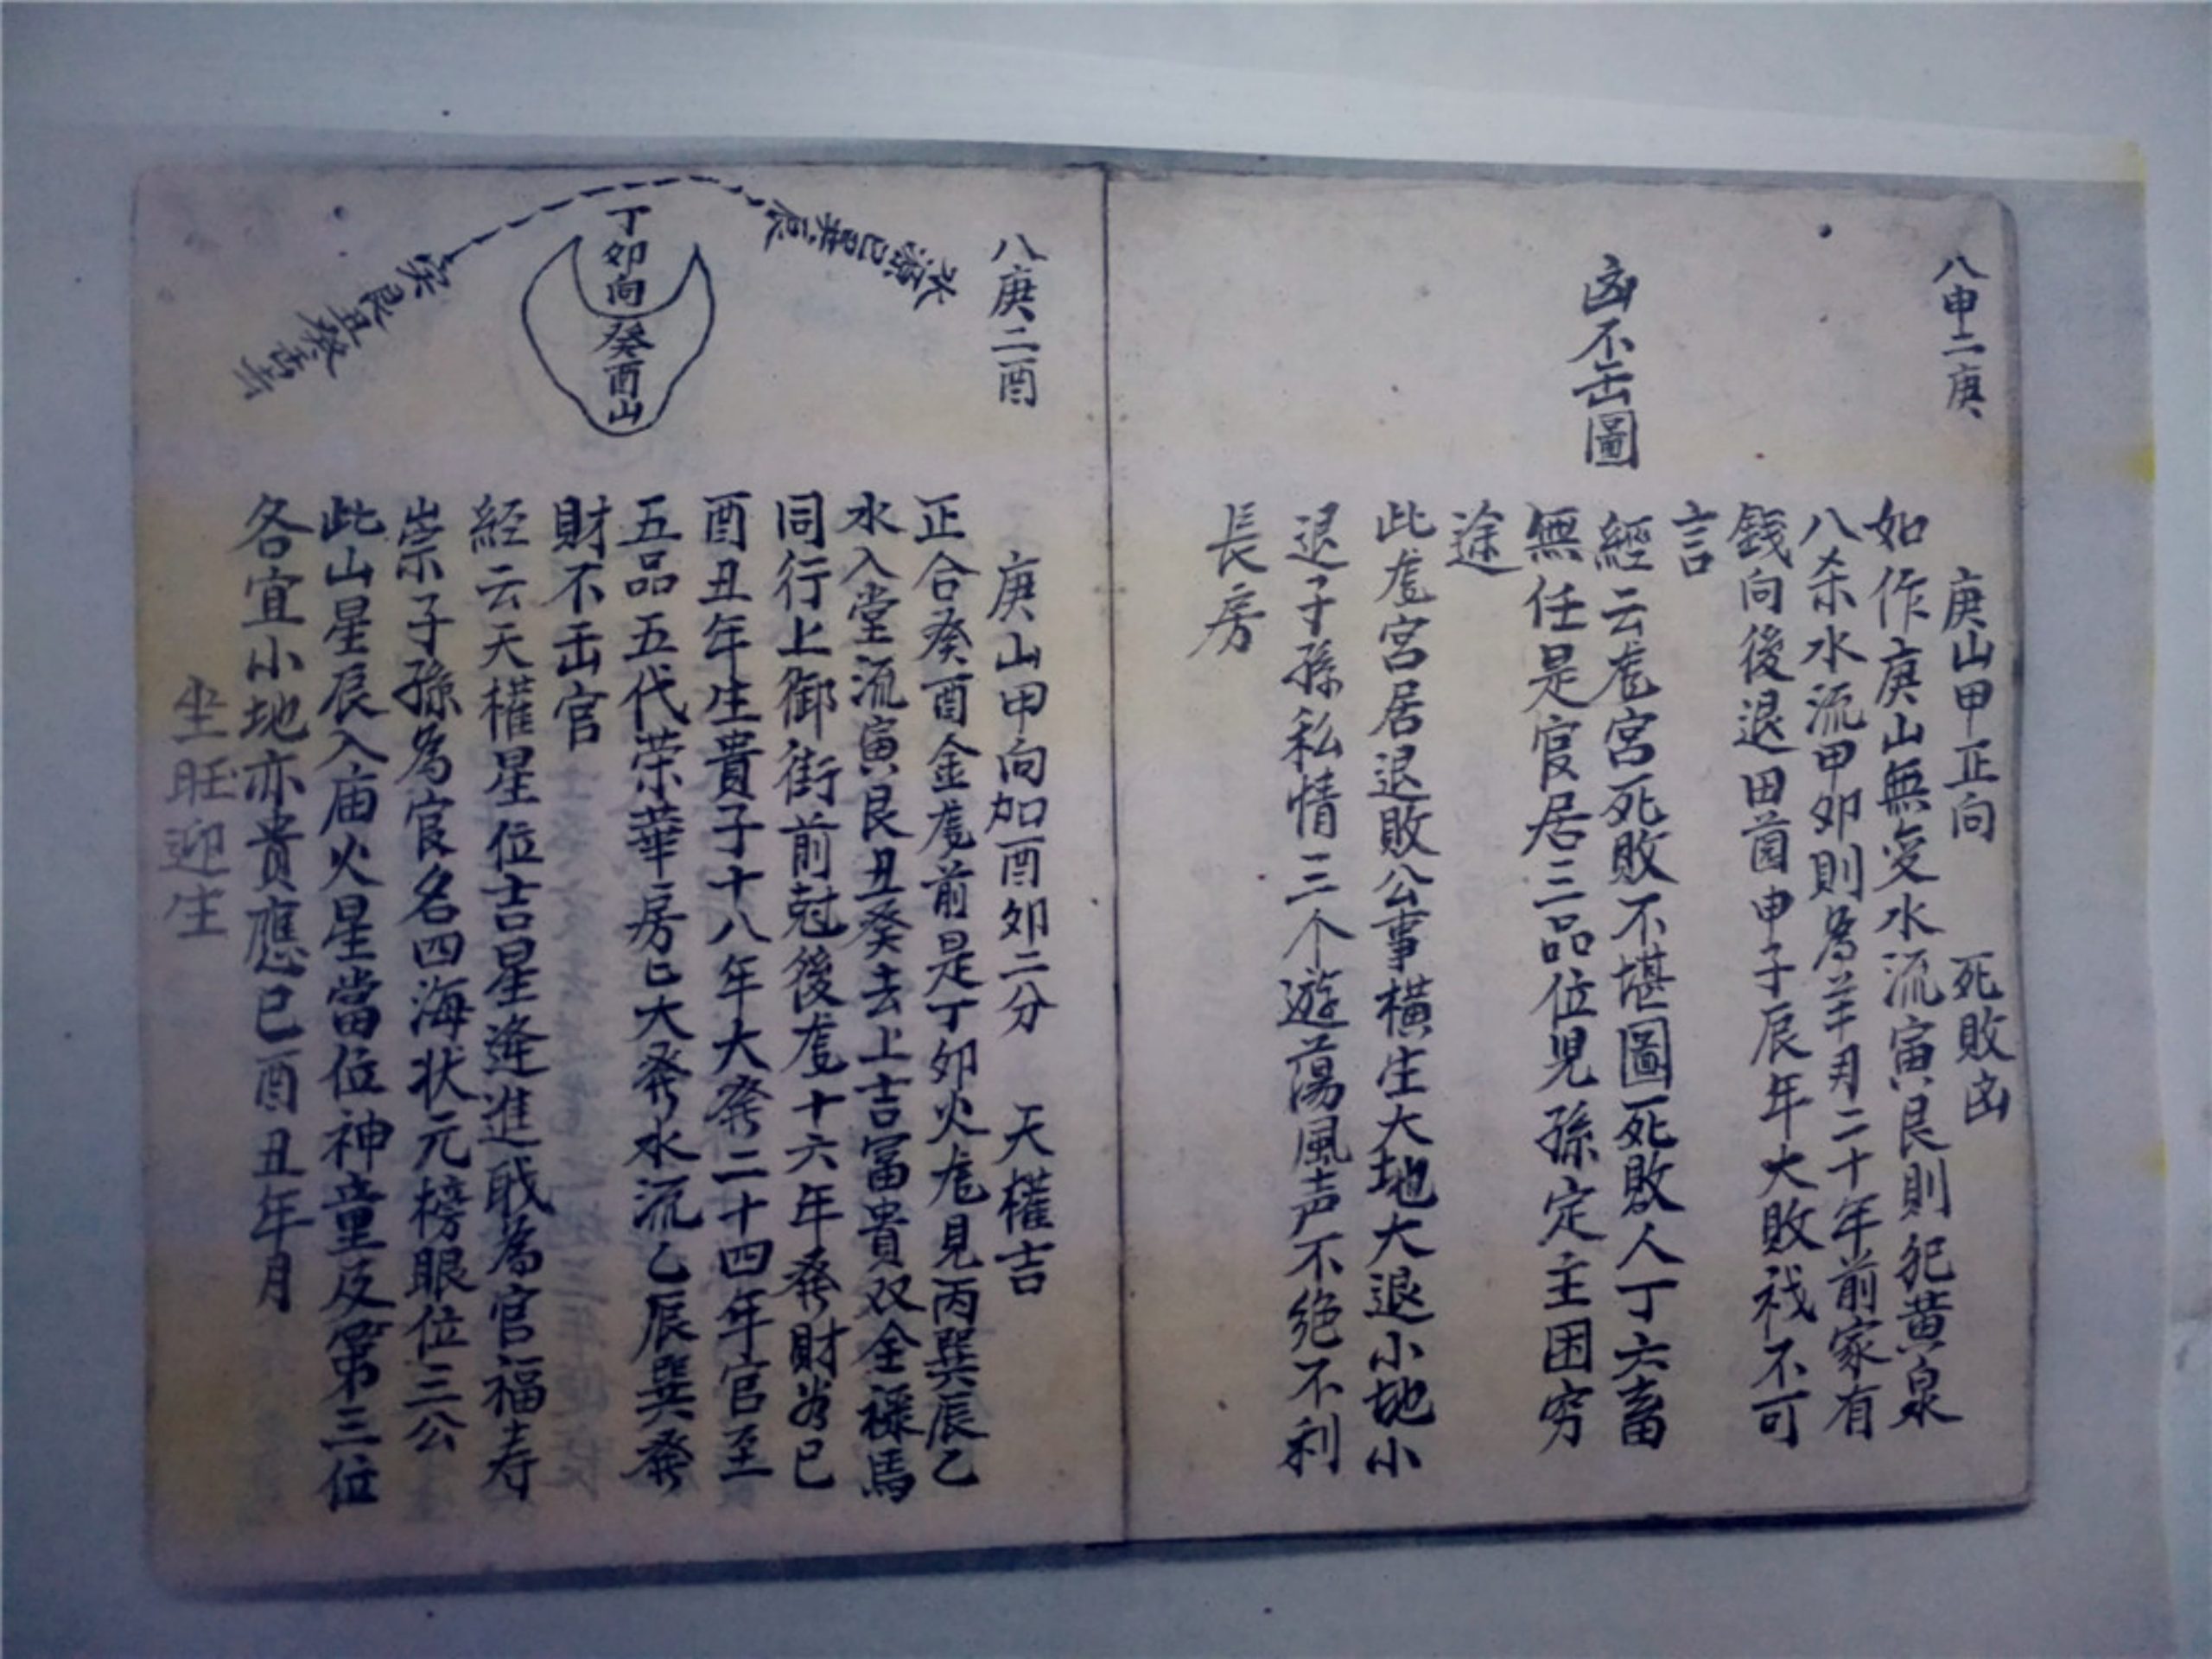 八申二庚
凶不缶圖
庚山甲正向 死敗凶
如作庚山無受水流寅艮則犯黄泉
八杀水流甲卯則為羊刃二十年前家有
錢向後退田茵申子辰年大敗 不可
言
經云 宮死敗不堪圖死敗人丁六畜
無任是官居三品位児孫定主困穷
途
此 宮居退敗公事横生大地大退小地小
退子孫私情三个遊蕩風声不绝不利
長房
八庚二酉
水源巳巽辰
丁卯向
癸酉山
寅艮丑癸
庚山甲向加酉卯二分 天權吉
正合癸酉金 前是丁卯火 見丙巽辰乙
水入堂流寅艮丑癸去上吉富貴双全禄馬
同行上御街前尅後 十六年發財 巳
酉丑年生貴子十八年大發二十四年官至
五品五代荣華房巳大發水流乙辰巽發
財不缶官
經云天權星位吉星逄進戢為官福寿
崇子孫為官名四海状元榜眼位三公
此山星辰入庙火星當位神童及第三位
各宜小地亦貴應巳酉丑年月
坐旺迎生